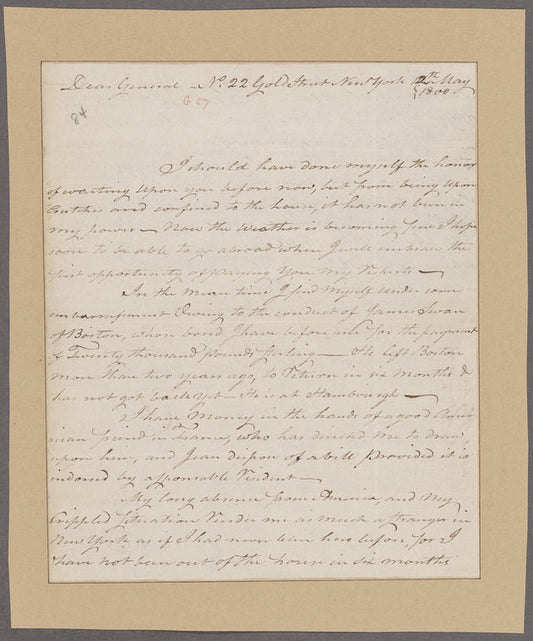 Dear General – No. 22 Gold Street New York 2th May
1800
G 07
84
I should have done myself the honor
of waiting Upon you before now, but from being Upon
Crutches and confined to the house, it has not been in
my power – Now the Weather is becoming fine I hope
soon to be able to go abroad when I will embrace the
first opportunity of paying You My Respects –
In the mean time I find Myself under some
embarrassment Owing to the conduct of James Swan
of Boston, whose bond I have before me for the payment
of Twenty thousand Pounds Sterling – He left Boston
more than two years ago, to Return in six months &
has not got back yet – He is at Hambourgh –
I have Money in the hands of a good Amer
ican friend in France, who has directed me to draw,
upon him, and I can dispose of a bill Provided it is
indorsed by a responsable Resident –
My long absence from America, and My
Crippled Situation Render me as much a stranger in
New York as if I had never been here before, for I
have not been out of the house in six months